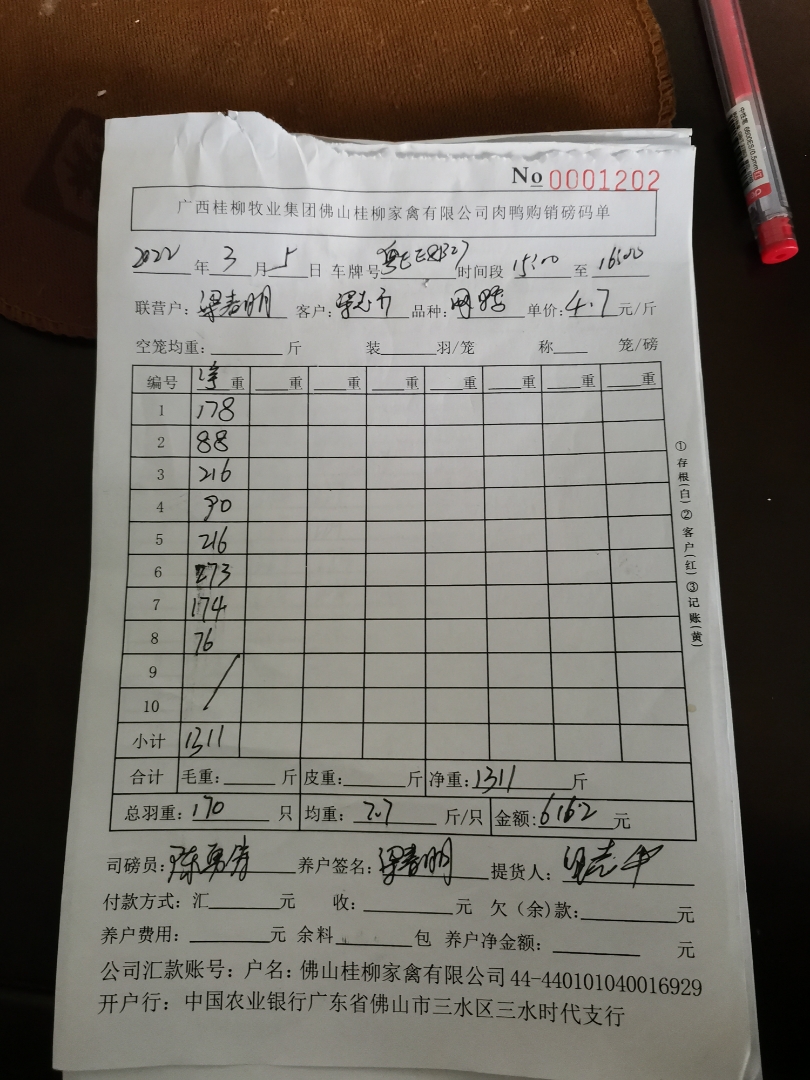 No 0001202
广西桂柳牧业集团佛山桂柳家禽有限公司肉鸭购销磅码单
2022年3月5日 车牌号 时间段 15:00 至 16:00
联营户：梁春明 客户：梁志 品种： 单价：4.7元/斤
空笼均重：斤 装 羽/笼 称 笼/磅
编号 净重 重 重 重 重 重 重 重
1 178
2 88
3 216
4 90
5 216
6 273
7 174
8 76
9
10
小计 1311
合计 毛重：斤 皮重：斤 净重：1311斤
总羽重：170只 均重：7.7斤/只 金额：6162元
司磅员：陈 养户签名：梁春明 提货人：
付款方式：汇 元 收：元 欠（余)款：元
养户费用：元 余料 包 养户净金额：元
公司汇款账号：户名：佛山桂柳家禽有限公司 44-440101040016929
开户行：中国农业银行广东省佛山市三水区三水时代支行
①存根(白)②客户(红)③记账(黄)